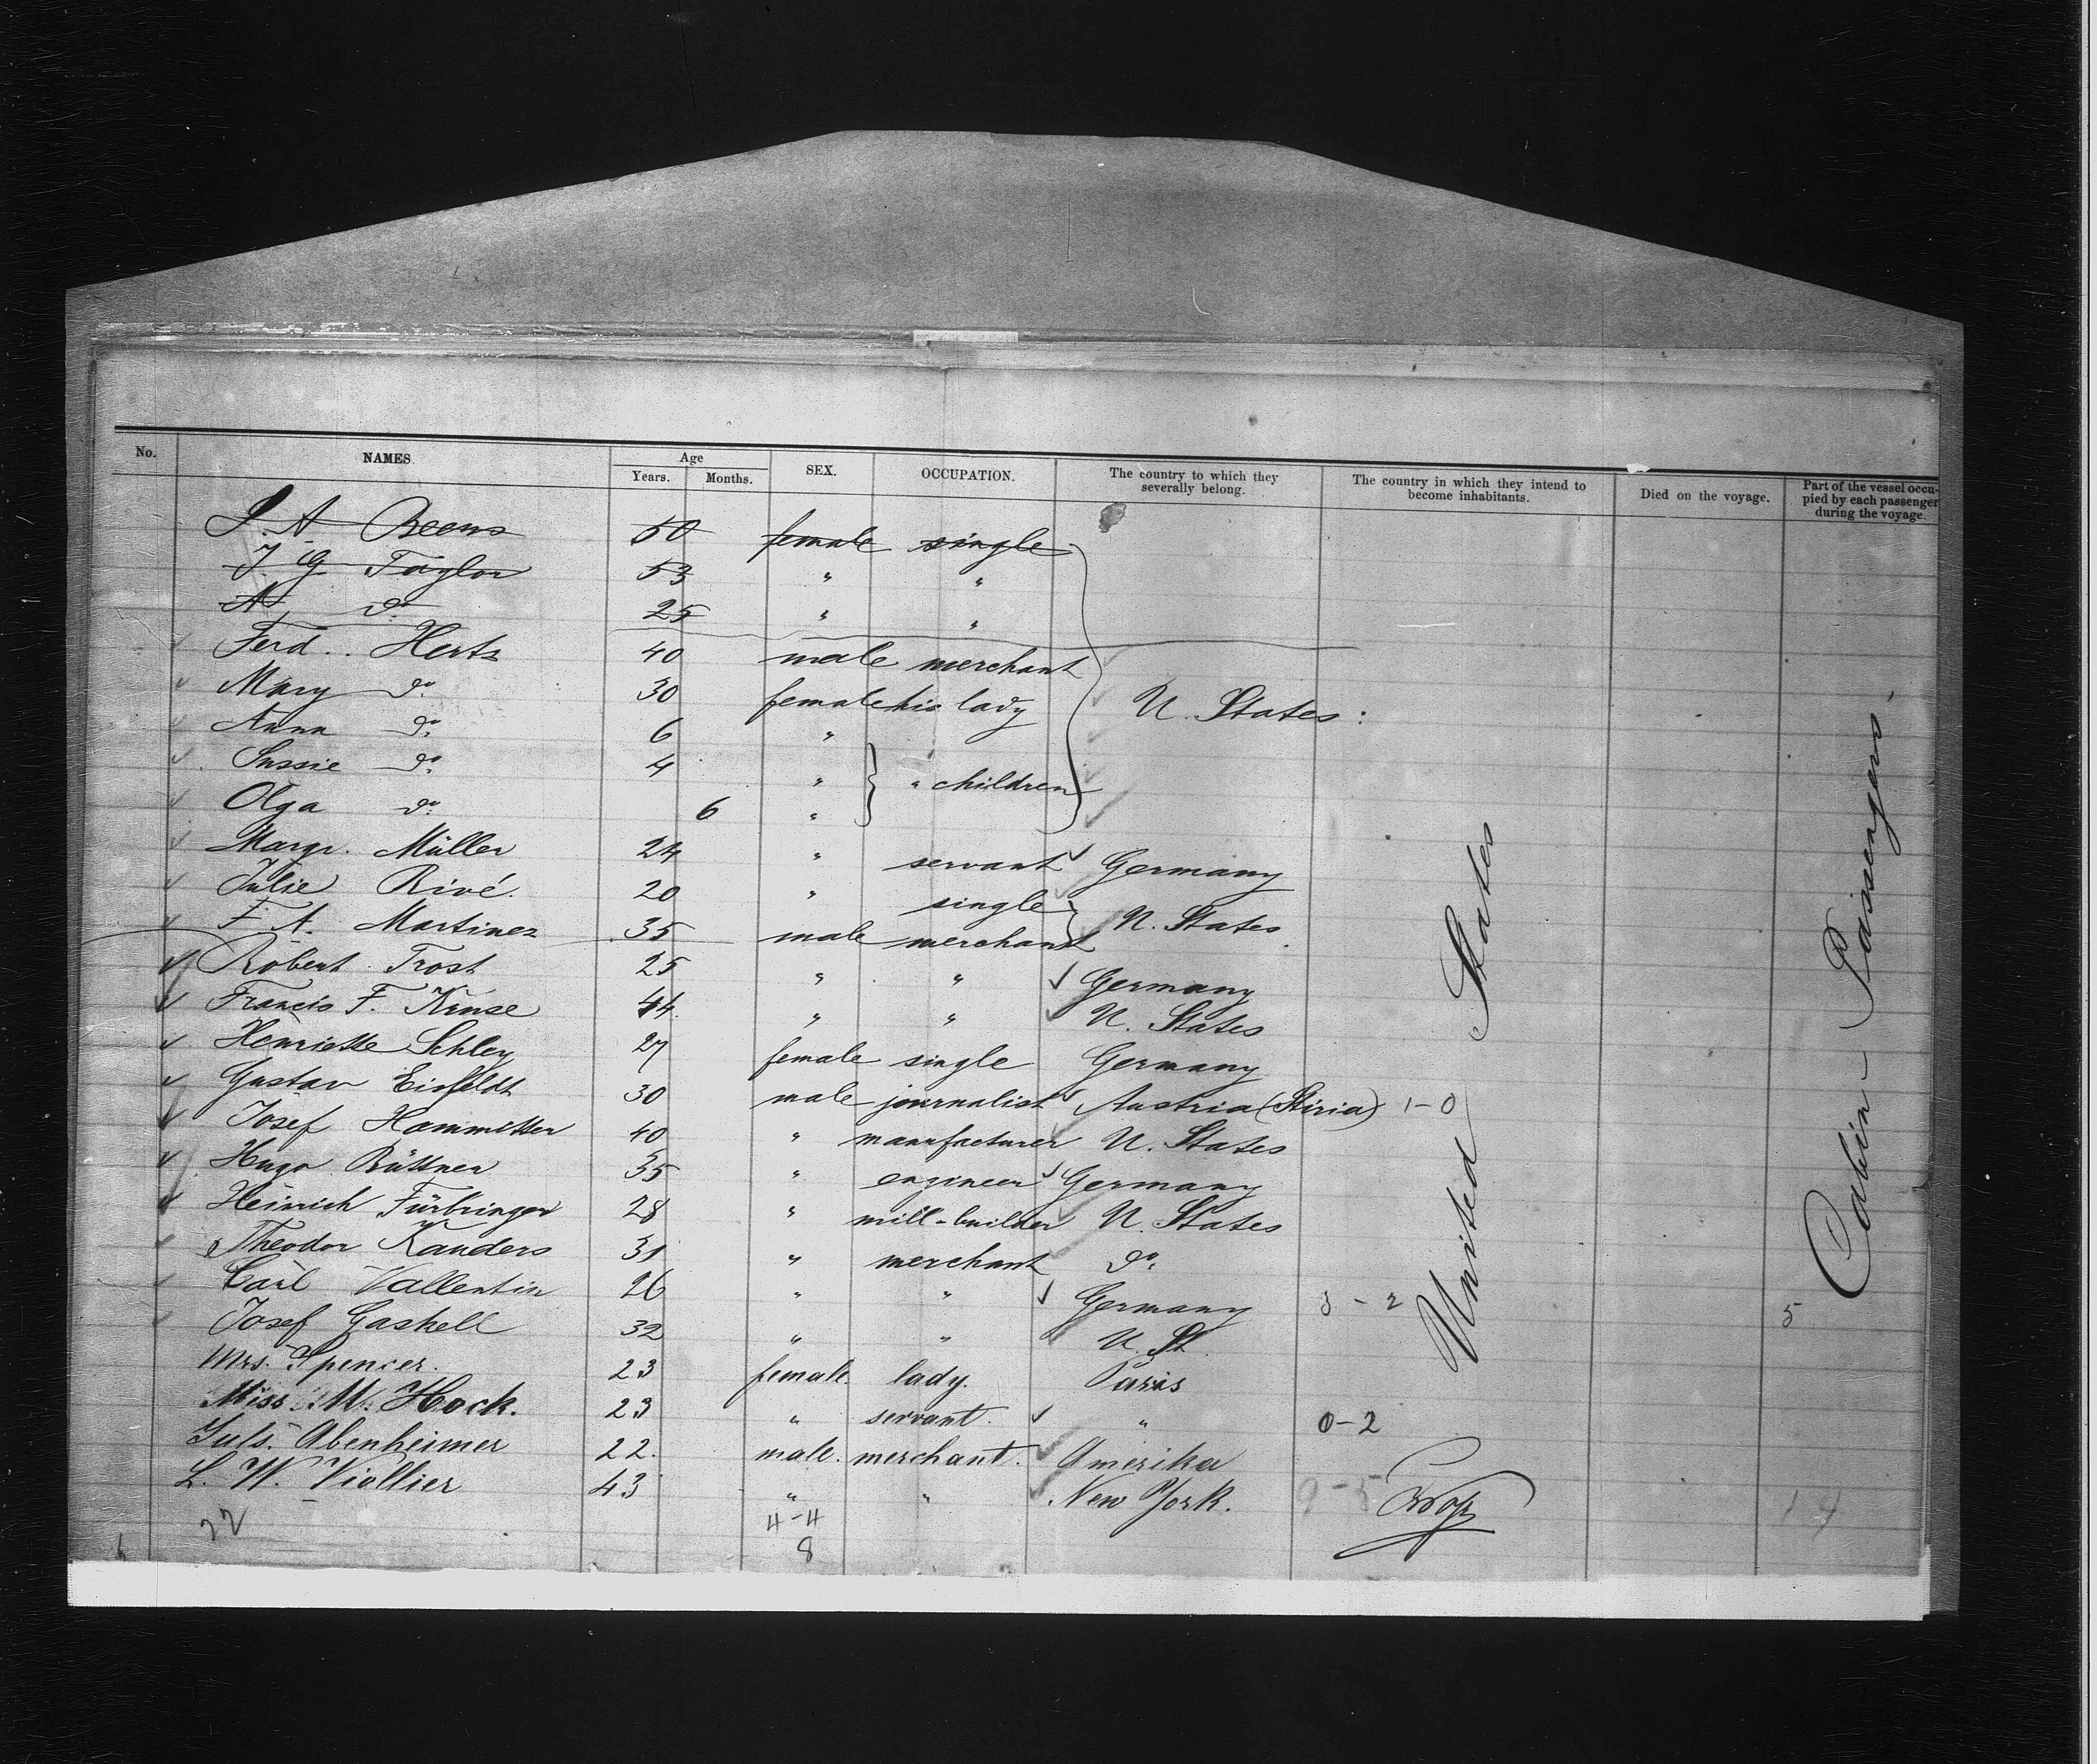 No. NAMES. Age SEX. OCCUPATION. The country to which they severally belong. The country in which they intend to become inhabitants. Died on the voyage. Part of the vessel occupied by each passenger during the voyage.
Years. Months.
J. A. Beens 50 female single
J G Taylor 53 " "
A. do 25 " "
Ferd. Hertz 40 male merchant
Mary do 30 female his lady U. States:
Anna do 6 "
Sussie do 4 " " children
Olga do 6 "
Margr. Müller 24 " servant Germany
Julie Rivé. 20 " single
F. A. Martinez 35 male merchant U. States
Robert Trost 25 " " Germany
Francis F. Kruse 44 " " U. States
Henriette Schley 27 female single Germany
Gustav Eisfeldt 30 male journalist Austria (Stiria) 1-0
Josef Hammetter 40 " manufacturer U. States
Hugo Büttner 35 " engineer Germany
Heinrich Fürbringer 28 " mill-builder U. States
Theodor Kanders 31 " merchant do
Carl Vallentin 26 " " Germany 3-2 5
Josef Gaskell 32 " " U. St.
Mrs. Spencer. 23 female. lady. Paris
Miss M. Hock. 23 " servant. " 0-2
Juls. Abenheimer 22. male. merchant. Amerika
L. W. Viollier 43 " " New York. 9-5 14
22 4-4
8
United States
Cabin Passengers.